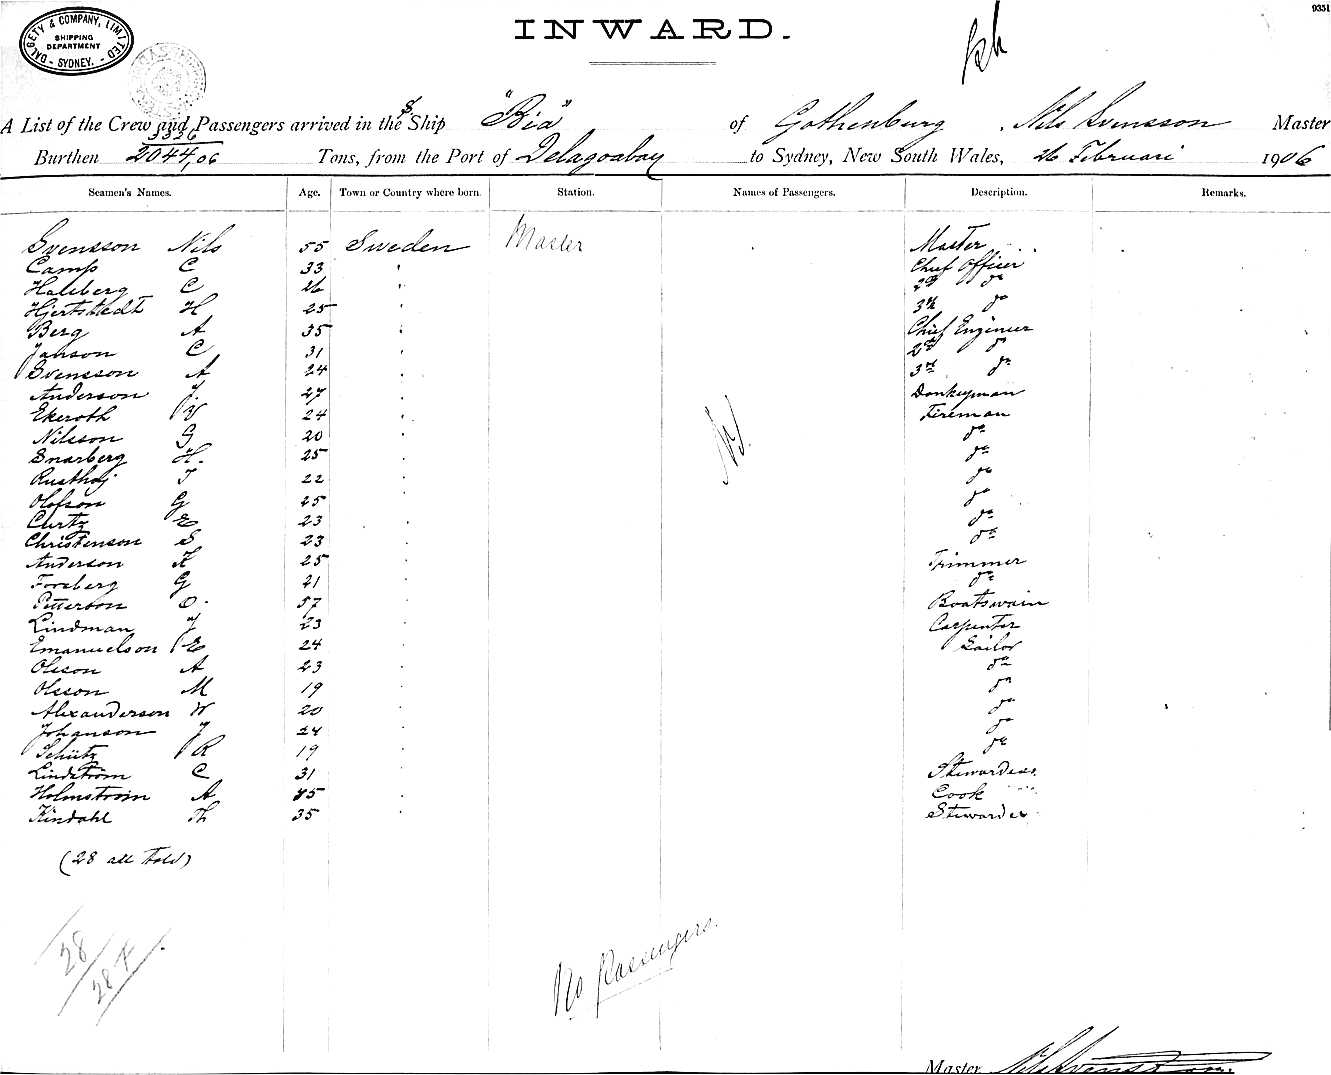 9351
DALGETY & COMPANY, LIMITED
SHIPPING
DEPARTMENT
SYDNEY.
INWARD.
A List of the Crew and Passengers arrived in the S Ship "Bia" of Gothenburg, Nils Svensson Master
3326
Burthen 2044,06 Tons, from the Port of Delagoabay to Sydney, New South Wales, 26 Februari 1906
Seamen's Names. Age. Town or Country where born. Station. Names of Passengers. Description. Remarks.
Svensson Nils 55 Sweden Master Master
Camp C 33 " Chief Officer
Halsberg C 26 " 2d do
Hjertstedt H 25 " 3d do
Berg A 35 " Chief Engineer
Janson C 31 " 2d do
Svensson A 24 " 3rd do
Anderson J. 27 " Donkeyman
Ekeroth W 24 " Fireman
Nilsson G 20 " do
Snarberg H. 25 " do
Rusthoj T 22 " do
Olofson G 25 " do
Curtz E 23 " do
Christenson S 23 " do
Anderson K 25 " Trimmer
Forsberg G 21 " do
Petterson O. 57 " Boatswain
Lindman J 23 " Carpenter
Emanuelson E 24 " Sailor
Olsson A 23 " do
Olsson M 19 " do
Alexanderson W 20 " do
Johanson J 24 " do
Schütz R 19 " do
Lindström C 31 " Stewardess
Holmström A 45 " Cook
Kindahl Th 35 " Stewardess
Nil
(28 all told)
28
28 F
No Passengers.
Master Nils Svensson.